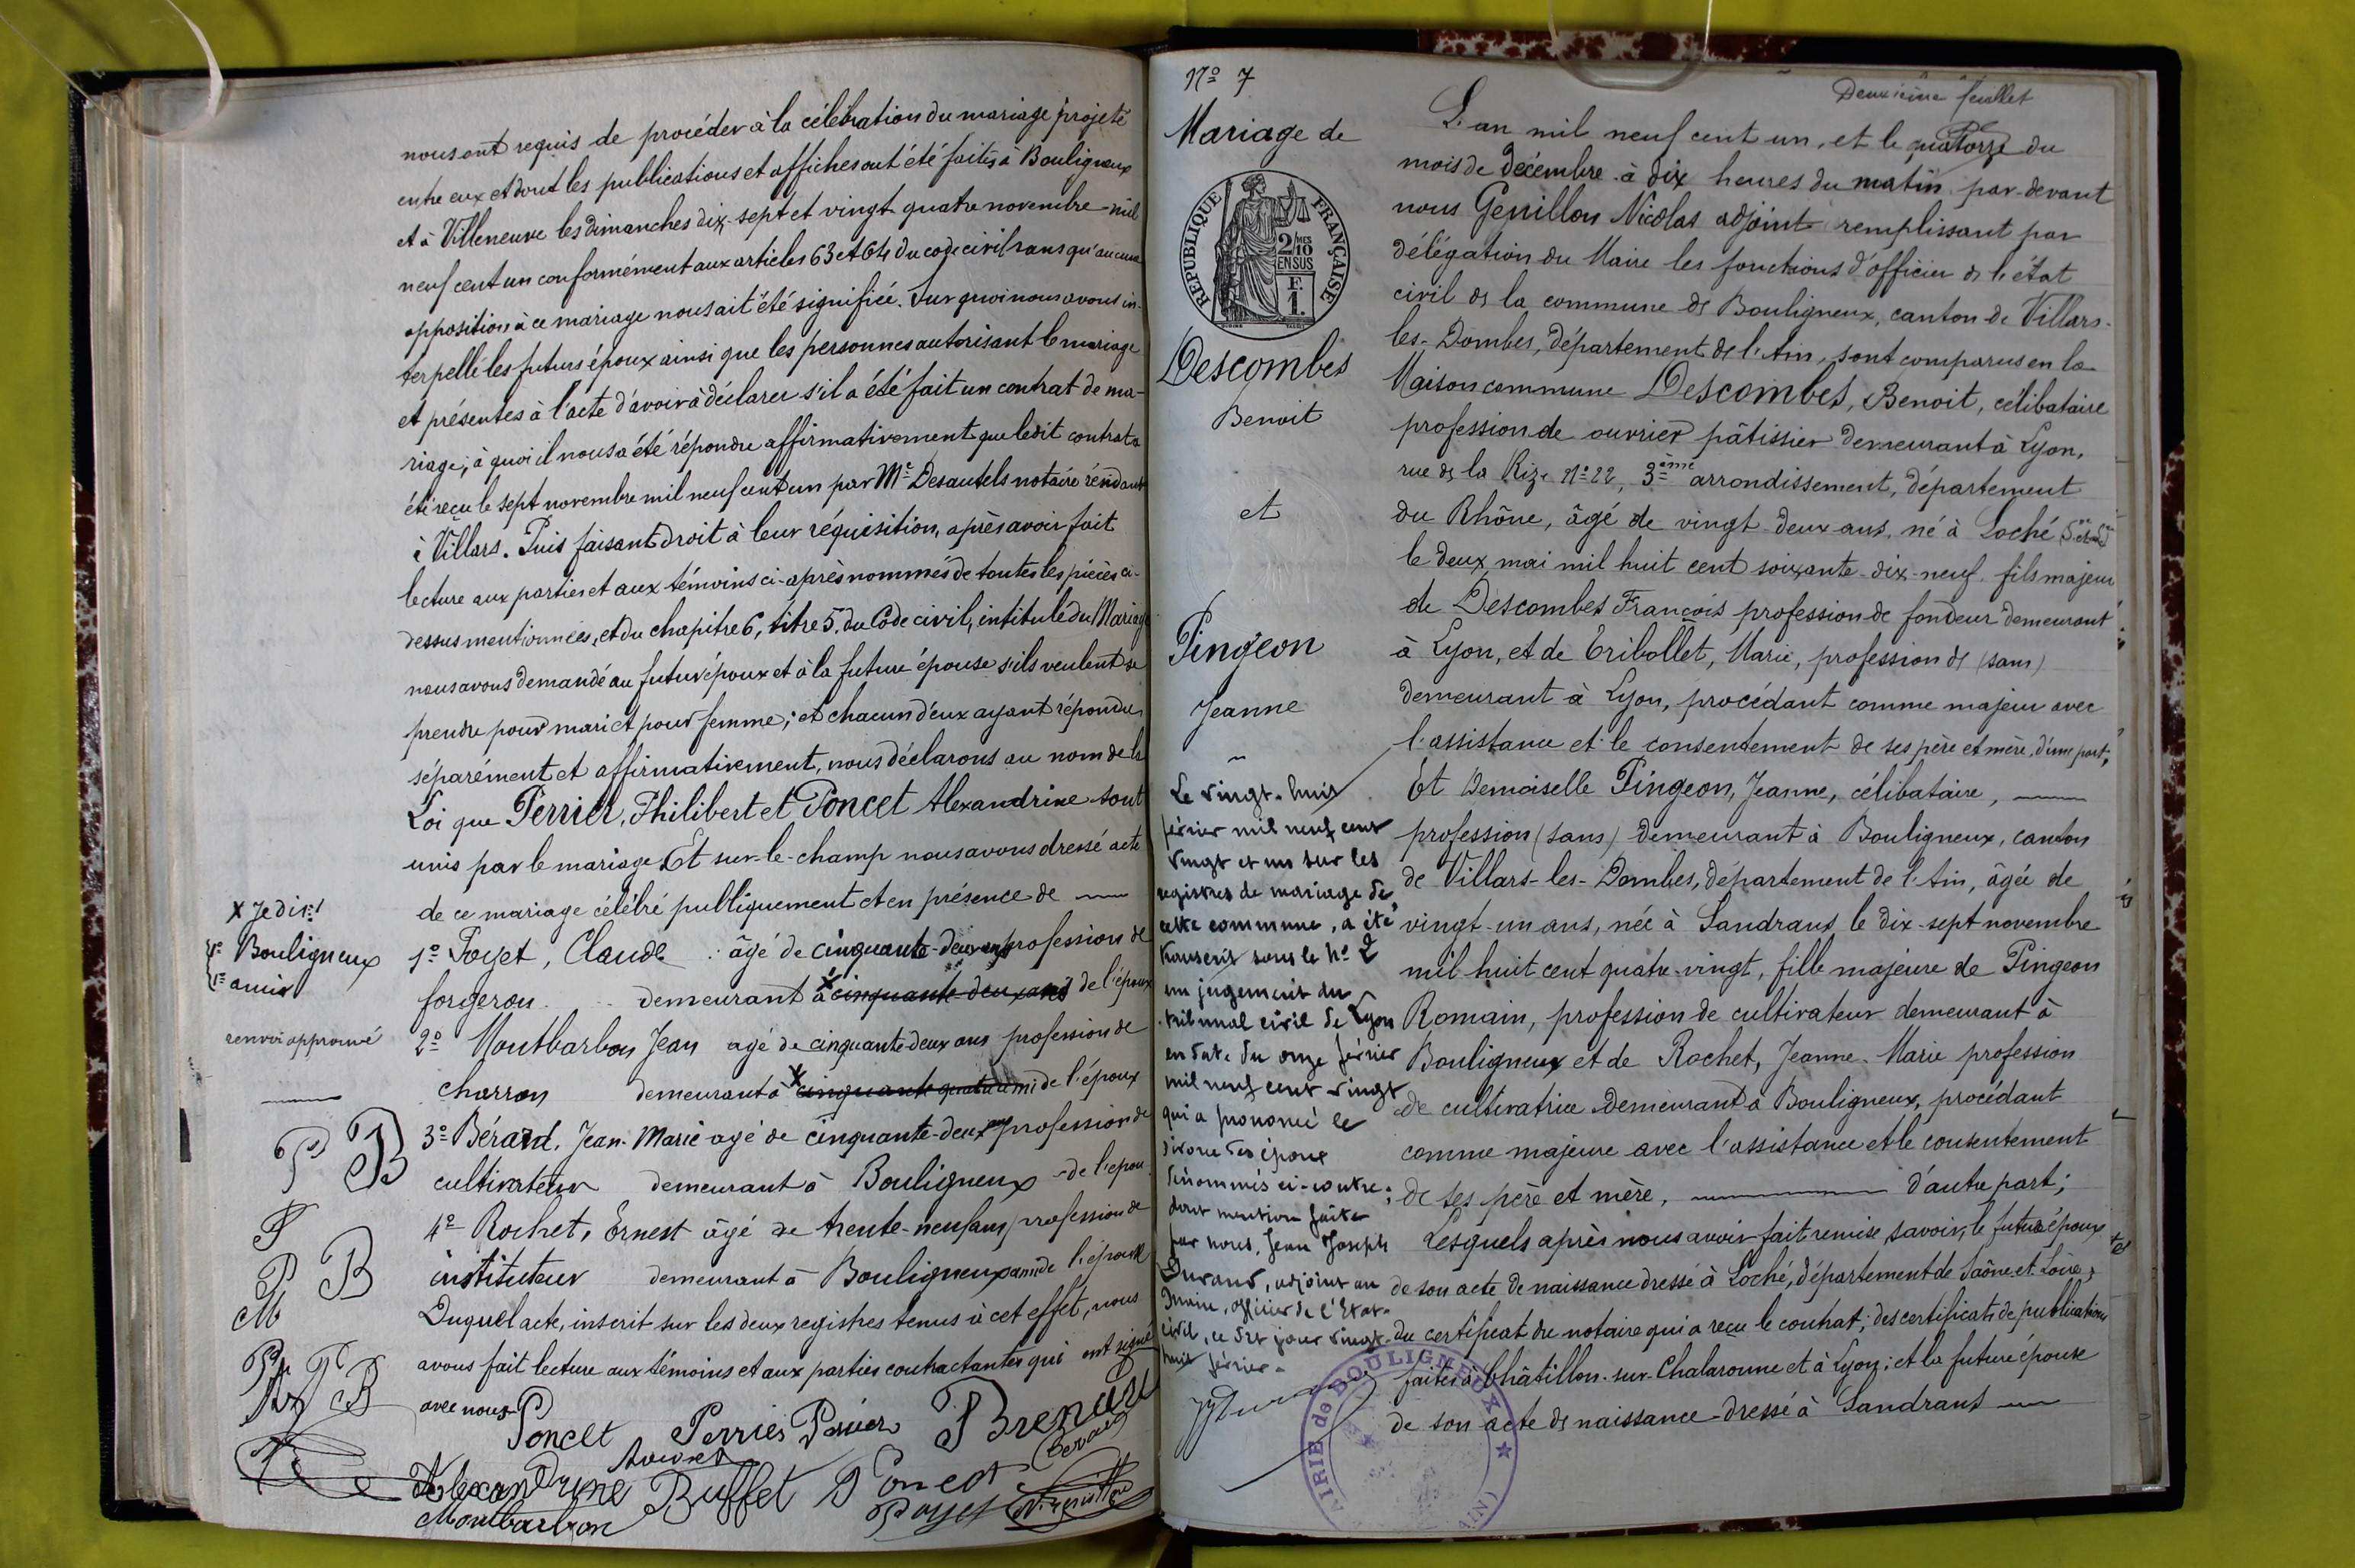 nous ont requis de procéder à la célébration du mariage projeté
entre eux et dont les publications et affiches ont été faites à Bouligneux
et à Villeneuve les dimanches dix-sept et vingt quatre novembre mil
neuf cent un conformément aux articles 63 et 64 du code civil sans qu'aucune
opposition à ce mariage nous ait été signifiée. Sur quoi nous avons in-
terpellé les futurs époux ainsi que les personnes autorisant le mariage
et présentes à l'acte d'avoir à déclarer s'il a été fait un contrat de ma-
riage; à quoi il nous a été répondu affirmativement que ledit contrat a
été reçu le sept novembre mil neuf cent un par Me Desautels notaire résidant
à Villars. Puis faisant droit à leur réquisition, après avoir fait
lecture aux parties et aux témoins ci-après nommés de toutes les pièces ci-
dessus mentionnées, et du chapitre 6, titre 5, du Code civil, intitulé du Mariage
nous avons demandé au futur époux et à la future épouse s'ils veulent se
prendre pour mari et pour femme; et chacun d'eux ayant répondu
séparément et affirmativement, nous déclarons au nom de la
Loi que Perrier, Philibert et Poncet Alexandrine sont
unis par le mariage. Et sur-le-champ nous avons dressé acte
de ce mariage célébré publiquement et en présence de
1º Poyet, Claude âgé de cinquante-deux ans profession de
forgeron demeurant à x cinquante-deux ans de l'époux
2º Montbarbon Jean âgé de cinquante-deux ans profession de
charron demeurant à x de l'époux
3º Bérard, Jean-Marie âgé de cinquante-deux ans profession de
cultivateur demeurant à Bouligneux de l'épou
4º Rochet, Ernest âgé de trente-neuf ans profession de
instituteur demeurant à Bouligneux ami de l'épouse
Duquel acte, inscrit sur les deux registres tenus à cet effet, nous
avons fait lecture aux témoins et aux parties contractantes qui ont signé
avec nous
x Je dis:
Bouligneux
amis
renvoi approuvé
P B
P
P B
M
P B
Poncet Perrier Perrier Brenard
Buffet Poncet Berard
Alexandrine
Montbarbon Poyet N. Genillon
Nº 7
Mariage de
RÉPUBLIQUE FRANÇAISE
2/10MES
EN SUS
F.
1.
Descombes
Benoit
et
Pingeon
Jeanne
Le vingt-huit
février mil neuf cent
vingt et un sur les
registres de mariage de
cette commune, a été
transcrit sous le Nº 2
un jugement du
tribunal civil de Lyon
en date du onze février
mil neuf cent vingt
qui a prononcé le
divorce des époux
dénommés ci-contre;
dont mention faite
par nous, Jean Joseph
Durand, adjoint au
Maire, officier de l'Etat-
civil, ce dit jour vingt-
huit février.
Deuxième feuillet
L'an mil neuf cent un, et le quatorze du
mois de Décembre à dix heures du matin par-devant
nous Genillon Nicolas adjoint remplissant par
délégation du Maire les fonctions d'officier de l'état
civil de la commune de Bouligneux, canton de Villars-
les-Dombes, département de l'Ain, sont comparus en la
Maison commune Descombes, Benoit, célibataire
profession de ouvrier pâtissier demeurant à Lyon,
rue de la Rize Nº 22, 3ème arrondissement, département
du Rhône, âgé de vingt-deux ans, né à Loché
le deux mai mil huit cent soixante-dix-neuf, fils majeur
de Descombes François profession de fondeur demeurant
à Lyon, et de Tribollet, Marie, profession de (sans)
demeurant à Lyon, procédant comme majeur avec
l'assistance et le consentement de ses père et mère, d'une part;
Et Demoiselle Pingeon, Jeanne, célibataire,
profession (sans) demeurant à Bouligneux, canton
de Villars-les-Dombes, département de l'Ain, âgée de
vingt-un ans, née à Sandrans le dix-sept novembre
mil huit cent quatre-vingt, fille majeure de Pingeon
Romain, profession de cultivateur demeurant à
Bouligneux et de Rochet, Jeanne-Marie profession
de cultivatrice demeurant à Bouligneux, procédant
comme majeure avec l'assistance et le consentement
de ses père et mère, d'autre part;
Lesquels après nous avoir fait remise, savoir, le futur époux
de son acte de naissance dressé à Loché, département de Saône-et-Loire;
du certificat du notaire qui a reçu le contrat; des certificats de publications
faites à Châtillon-sur-Chalaronne et à Lyon; et la future épouse
de son acte de naissance dressé à Sandrans
MAIRIE de BOULIGNEUX
(AIN)